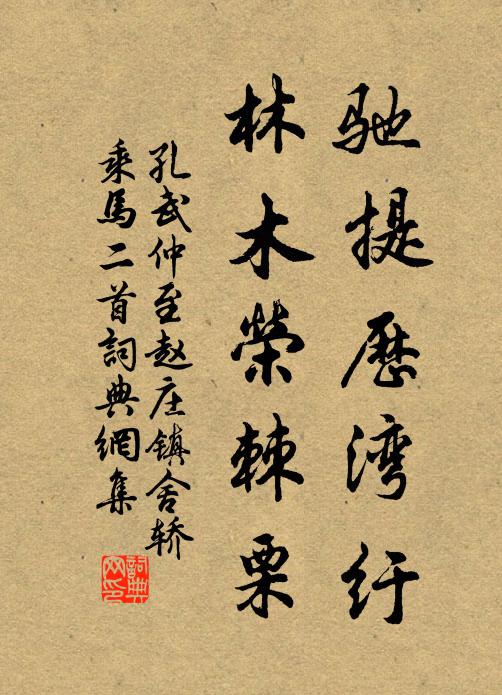 驰提历湾纡
林木荣棘栗
孔武仲至赵庄镇舍轿
乘馬二首詞典網集
詞典网印